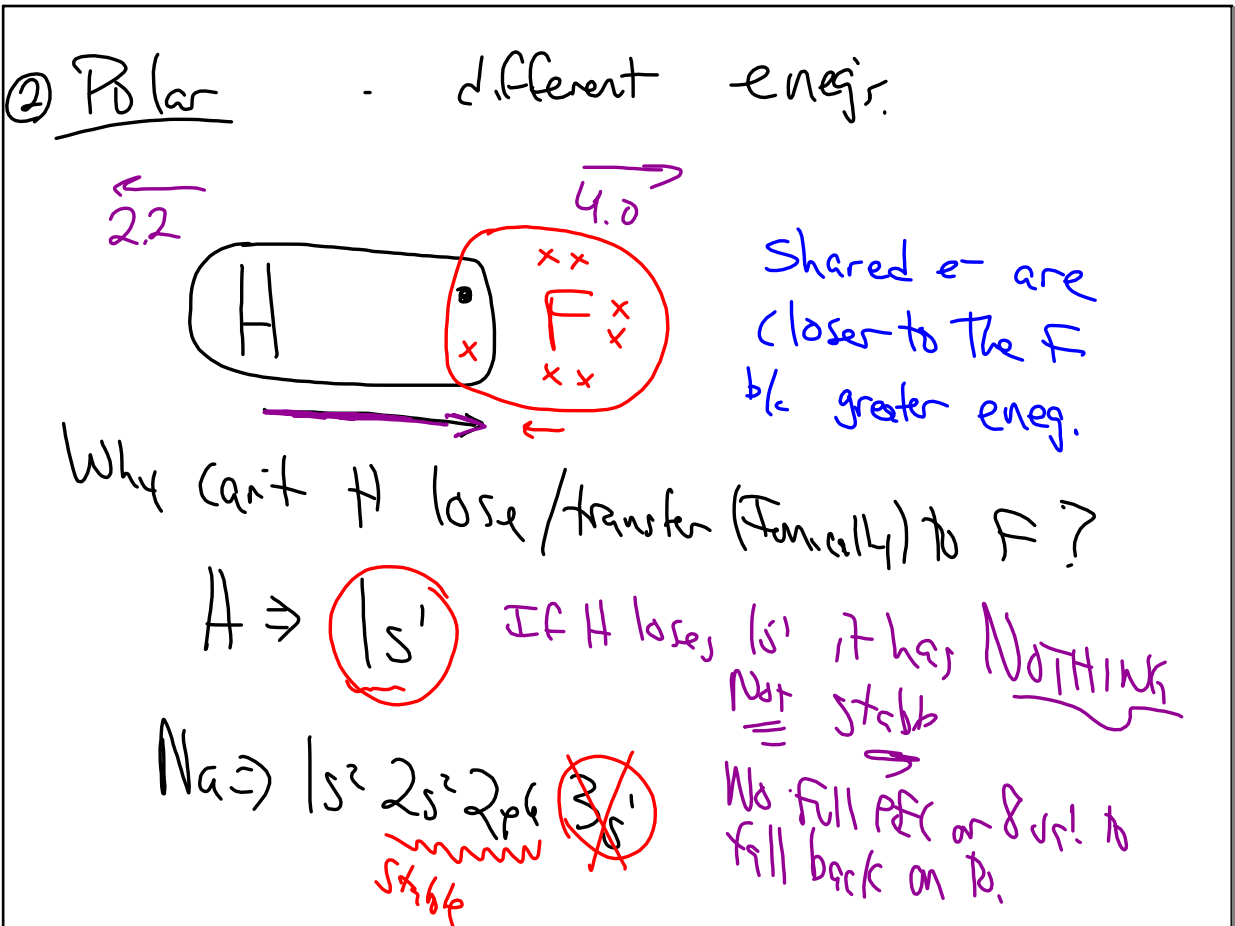 ② Polar - different eneg's.
2.2
4.0
H • x F x x x x x x
Shared e- are
closer to the F
b/c greater eneg.
Why can't H lose/transfer (Ionically) to F?
H ⇒ 1s¹
If H loses 1s¹ it has NOTHING
Not stable
Na ⇒ 1s² 2s² 2p6 3s¹
Stable
No full PEL or 8 val to
fall back on to.